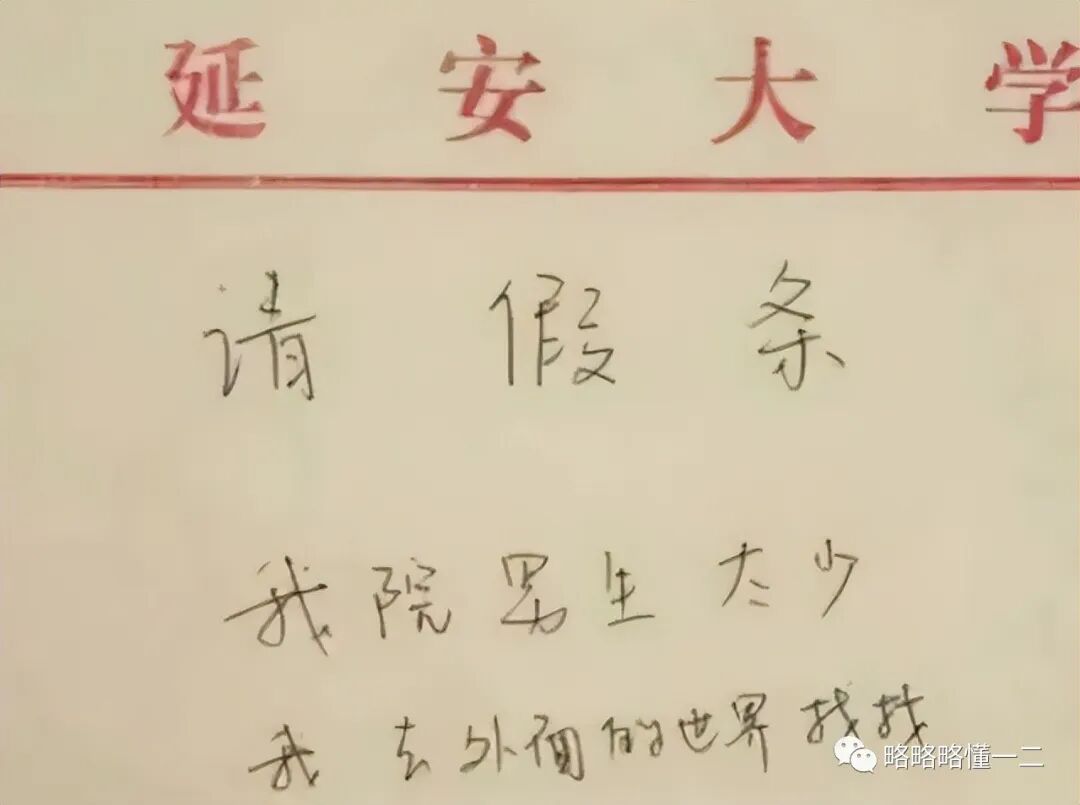 延安大学
请假条
我院男生太少
我去外面的世界找找
略略略懂一二